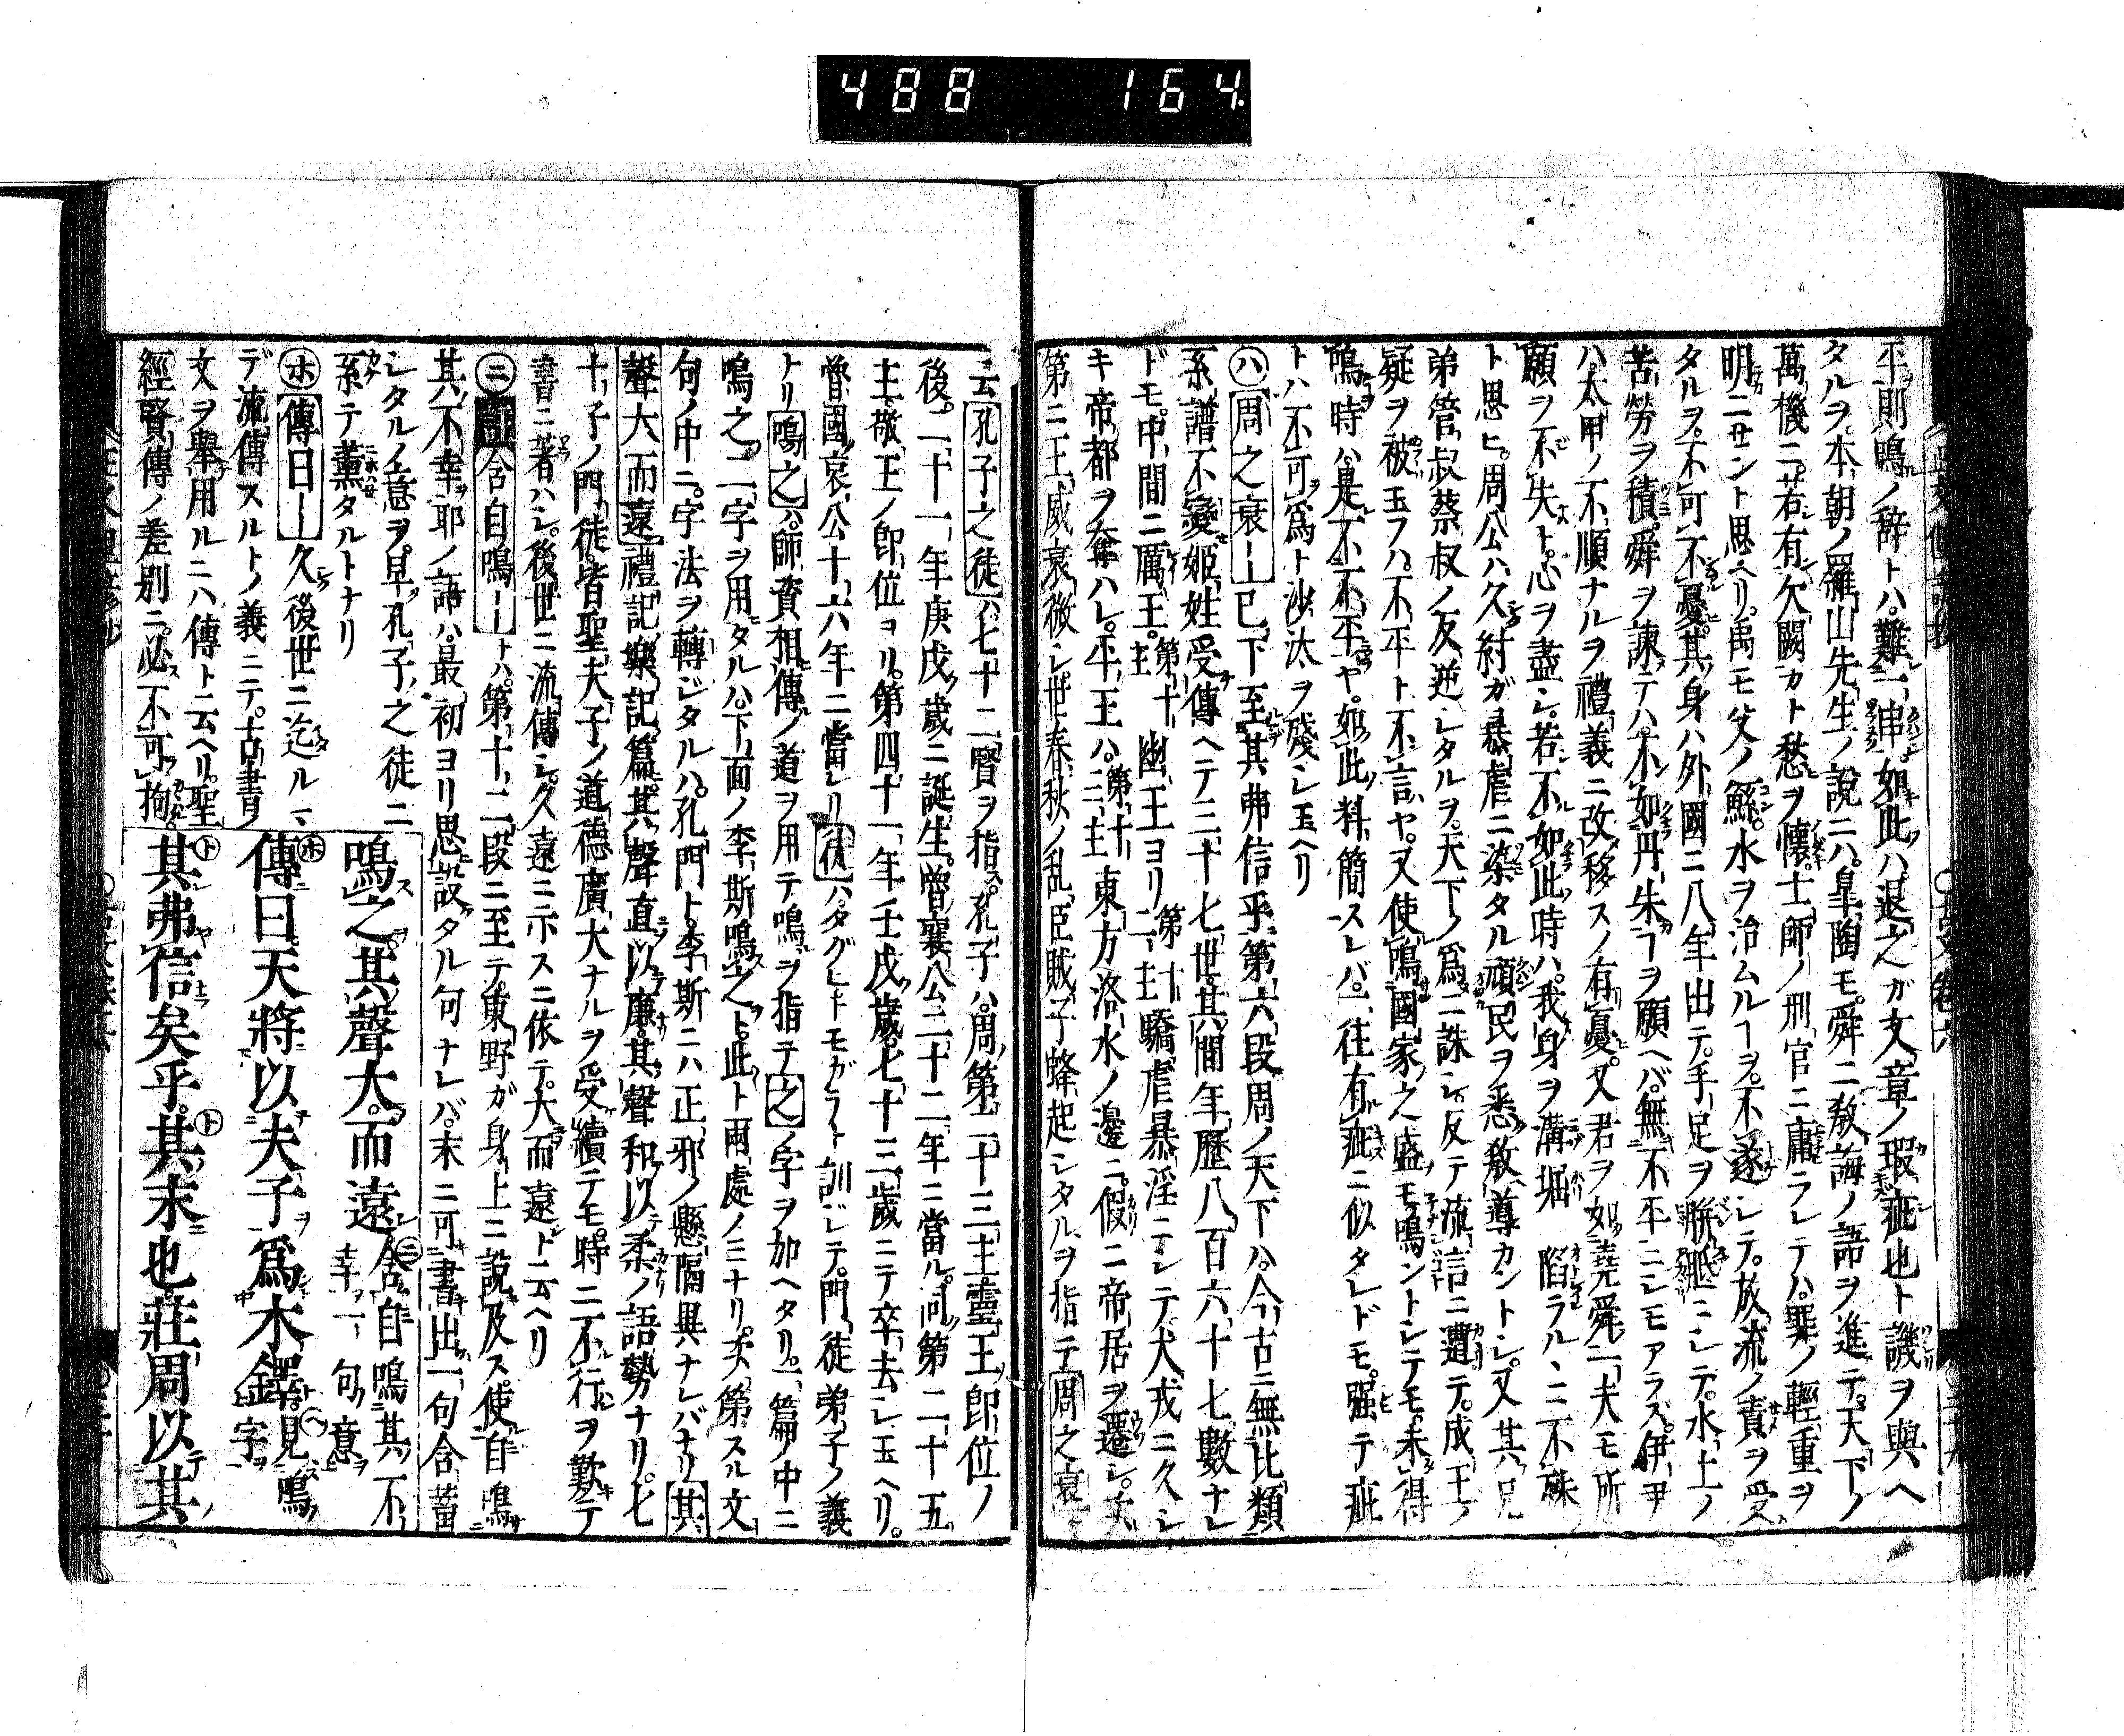 488 164
平則鳴ノ辞トハ難一串如此ハ退之ガ文章ノ瑕疵也ト譏ヲ與ヘ
タルヲ本朝ノ羅山先生ノ説ニハ皐陶モ舜ニ教誨ノ語ヲ進テ天下ノ
萬機ニ若有欠闕カト愁ヲ懐士師ノ刑官ニ庸ラレテハ罪ノ輕重ヲ
明ニセント思ヘリ禹モ父ノ鯀水ヲ治ムルヿヲ不遂シテ放流ノ責ヲ受
タルヲ不可不憂其身ハ外國ニ八年出テ手足ヲ胼胝ニシテ水土ノ
苦勞ヲ積舜ヲ諫テハ不如丹朱ヿヲ願ヘバ無不平ニシモアラズ伊尹
ハ太甲ノ不順ナルヲ禮義ニ改移スノ有憂又君ヲ如堯舜一夫モ所
願ヲ不失ト心ヲ盡シ若不如此時ハ我身ヲ溝堀陷ラルヽニ不殊
ト思ヒ周公ハ久紂ガ暴虐ニ染タル頑民ヲ悉敎導カントシ又其兄
弟管叔蔡叔ノ反逆シタルヲ天下ノ爲ニ誅シ反テ流言ニ遭テ成王ノ
疑ヲ被玉フハ不平ト不言ヤ又使鳴國家之盛モ鳴ントシテモ未得
鳴時ハ是不不平ヤ如此料簡スレバ一往有疵ニ似タレドモ强テ疵
トハ不可爲ト沙汰ヲ殘シ玉ヘリ
ハ周之衰ー已下至其弗信乎第六段周ノ天下ハ今古ニ無比類
系譜不變姫姓受傳ヘテ三十七世其間年歷八百六十七數ナレ
ドモ中間ニ厲王第十主幽王ヨリ第十二主驕虐暴淫ニシテ犬戎ニ久シ
キ帝都ヲ奪ハレ平王ハ第十三主東方洛水ノ邊ニ假ニ帝居ヲ遷シ
第二王威衰微シ世春秋ノ乱臣賊子蜂起シタルヲ指テ周之衰
云孔子之徒ハ七十二賢ヲ指ス孔子ハ周第二十三主靈王即位ノ
後二十一年庚戌歲ニ誕生魯襄公二十二年ニ當ル同第二十五
主敬王ノ即位ヨリ第四十一年壬戌歲七十三歲ニテ卒去シ玉ヘリ
魯國哀公十六年ニ當レリ徒ハタグヒトモガラト訓ジテ門徒弟子ノ義
トリ鳴之ハ師資相傳ノ道ヲ用テ鳴ヲ指テ之ノ字ヲ加ヘタリ一篇ノ中ニ
鳴之二字ヲ用タルハ下面ノ李斯鳴之ト此ト兩處ノミナリ次第スル文
句ノ中ニ字法ヲ轉ジタルハ孔門ト李斯ニハ正邪ノ懸隔異ナレバナリ其
聲大而遠禮記樂記篇其聲直以廉其聲和以柔ノ語勢ナリ七
十子ノ門徒皆聖夫子ノ道德廣大ナルヲ受續テモ時ニ不行ヲ歎テ
書ニ著ハシ後世ニ流傳シ久遠ニ示スニ依テ大而遠ト云ヘリ
ニ含自鳴ートハ第十二段ニ至テ東野ガ身上ニ說及ス使自鳴
其不幸耶ノ語ハ最初ヨリ思設タル句ナレバ末ニ可書出一句含蓄
シタルノ意ヲ早孔子之徒ニ
系テ薰タルトナリ
ホ傳曰ー久後世ニ迄ルマ
デ流傳スルトノ義ニテ古書ノ
文ヲ擧用ルニハ傳ト云ヘリ聖
經賢傳ノ差別ニ必不可拘
鳴之其聲大而遠ニ含自鳴其不幸ヲ一句ノ意
ホ傳曰天將以夫子爲木鐸ヘ見鳴字
ト其弗信矣乎ト其末也莊周以其